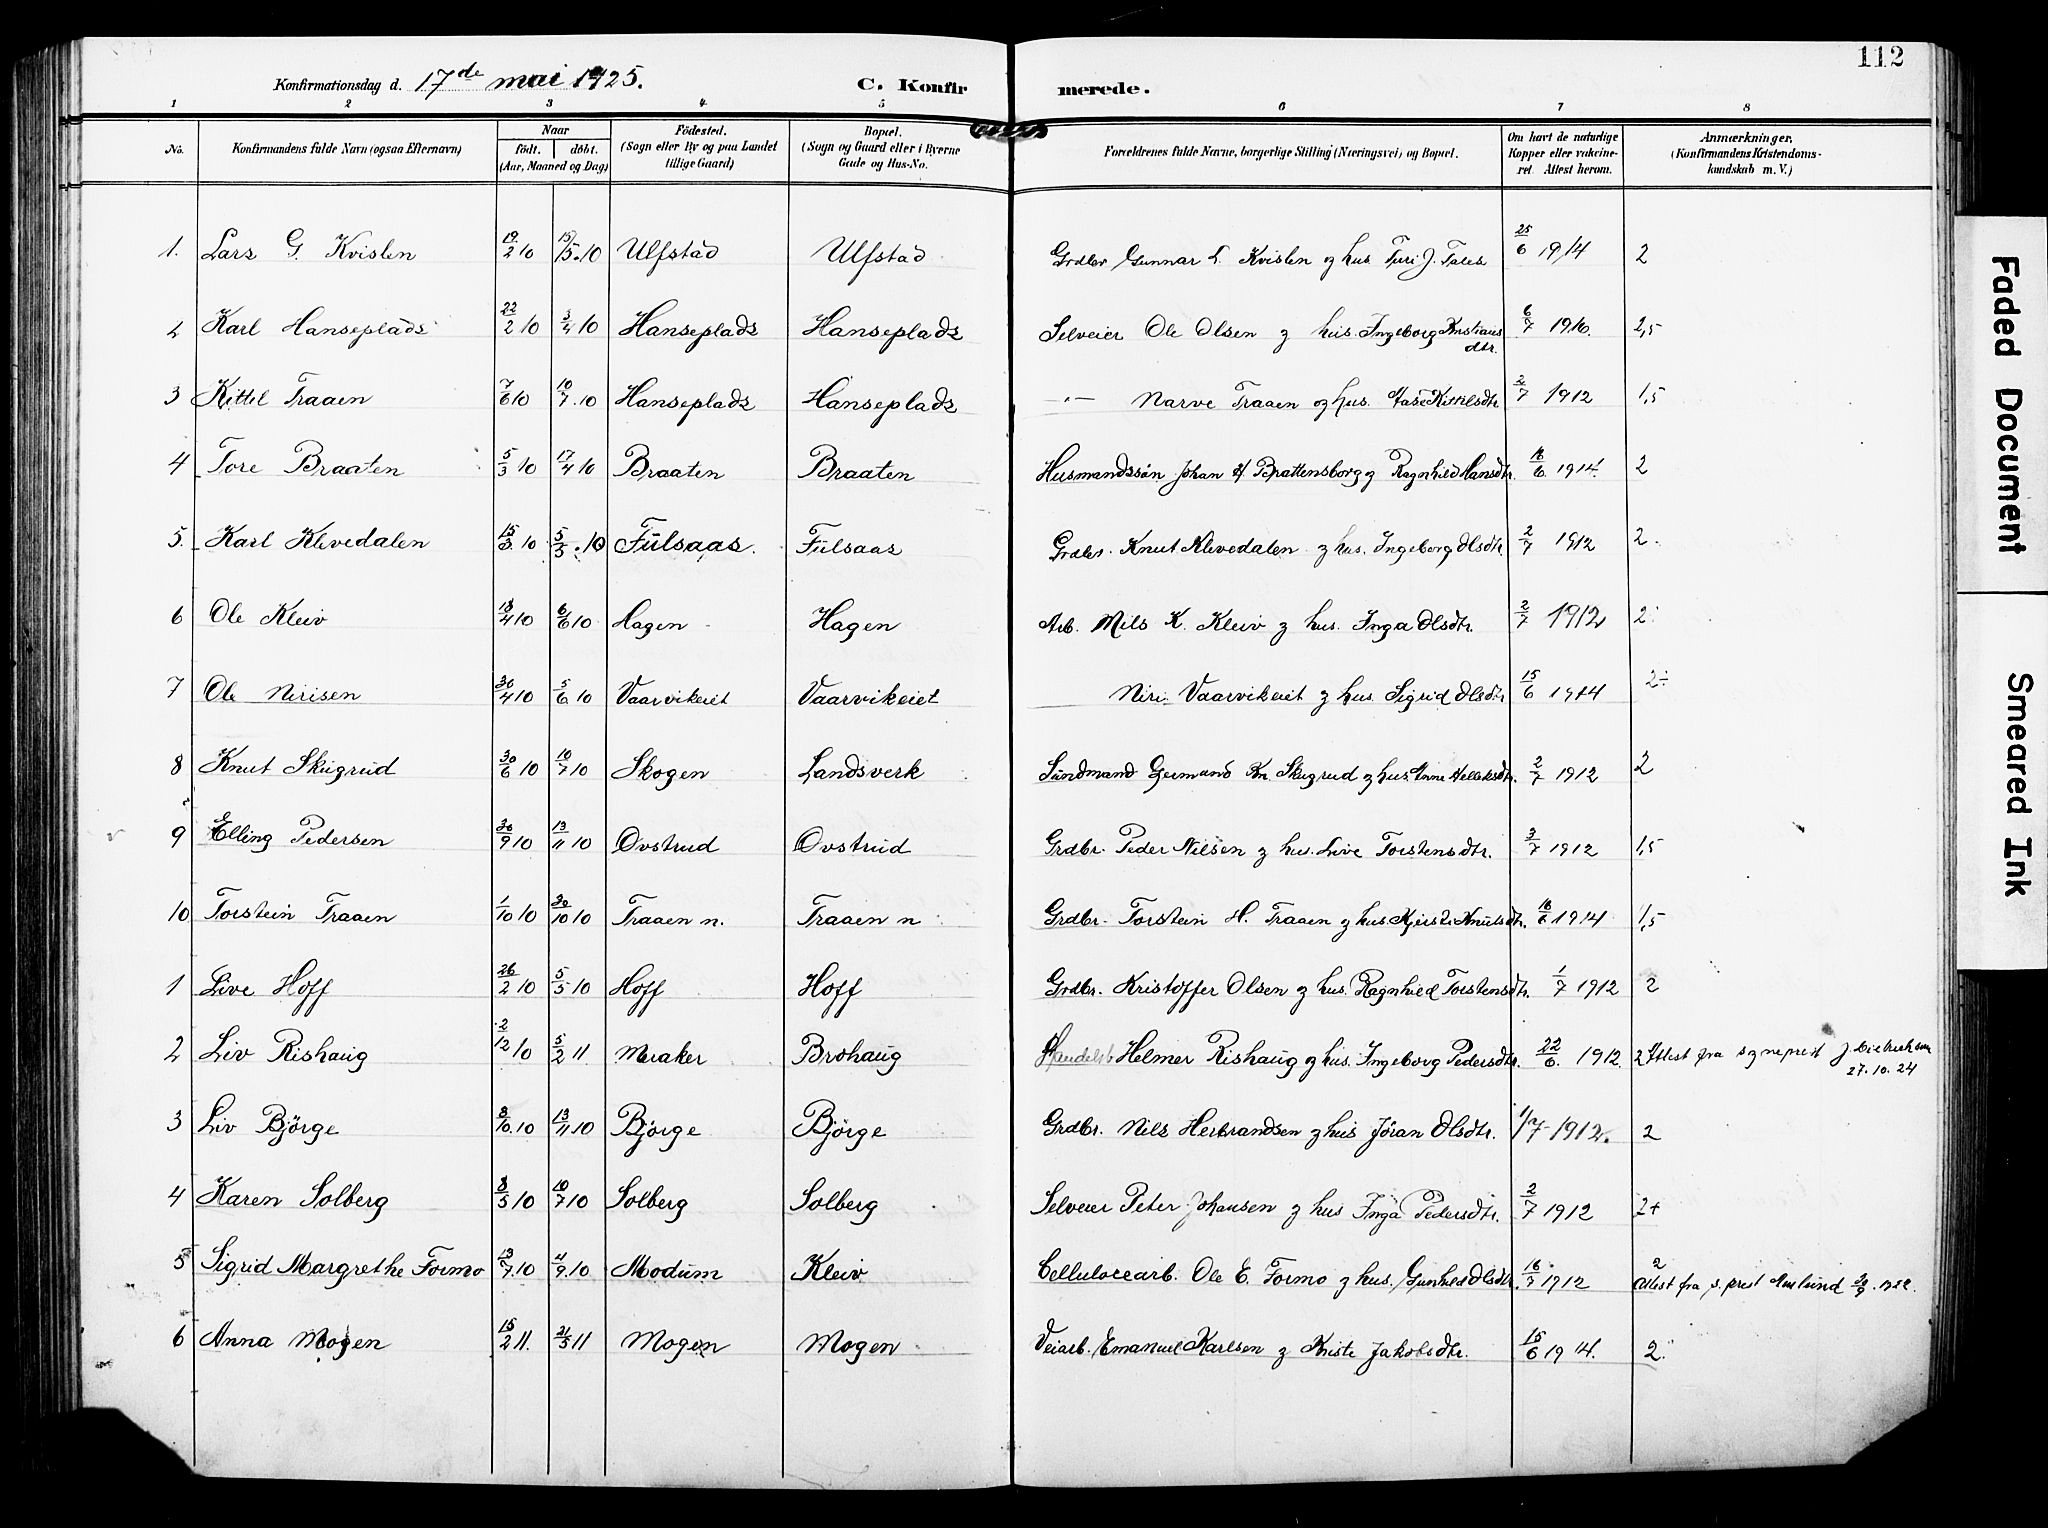 112
Konfirmationsdag d. 17de mai 1925. C. Konfirmerede.
1 2 3 4 5 6 7 8
No. Konfirmandens fulde Navn (ogsaa Efternavn) Naar født. døbt. (Aar, Maaned og Dag) Fødested. (Sogn eller By og paa Landet tillige Gaard) Bopæl. (Sogn og Gaard eller i Byerne Gade og Hus-No. Forældrenes fulde Navne, borgerlige Stilling (Næringsvei) og Bopæl. Om havt de naturlige Kopper eller vakcineret. Attest herom. Anmærkninger, (Konfirmandens Kristendomskundskab m. V.)
1. Lars G. Kvislen 19/2 10 15/5.10 Ulfstad Ulfstad Grdbr Gunnar L. Kvislen og hus. Turi J. 25/6 1914 2
2 Karl Hanseplads 22/2 10 3/4 10 Hanseplads Hanseplads Selveier Ole Olsen og hus. Ingeborg Kristians dtr. 6/7 1910. 2,5
3 Kittil Traaen 7/6 10 10/7.10 Hanseplads Hanseplads -"- Narve Traaen og hus. Aase Kittilsdtr 2/7 1912 1,5
4 Tore Braaten 5/3 10 17/4 10 Braaten Braaten Husmandssøn Johan H Brattensborg og Ragnhild Hansdtr. 16/6 1914. 2
5. Karl Klevedalen 15/3 10 5/5.10 Fulsaas. Fulsaas Grdbr. Knut Klevedalen og hus. Ingeborg Olsdtr. 2/7 1912 2.
6 Ole Kleiv 18/4 10 6/6 10 Hagen Hagen Arb. Nils K. Kleiv og hus. Inga Olsdtr. 2/7 1912 2
7 Ole Nirisen 30/4 10 5/6 10 Vaarvikeiet Vaarvikeiet Niri Vaarvikeiet og hus. Sigrid Olsdtr 15/6 1914 2÷
8 Knut Skugrud 30/6 10 10/7 10 Skogen Landsverk Sundmand Germund Kn. Skugrud og hus. Anne Helleksdtr. 2/7 1912 2
9 Elling Pedersen 30/9 10 13/11 10 Ovstrud Ovstrud Grdbr. Peder Nilsen og hus. Live Torstensdtr. 3/7 1912 1,5
10 Torstein Traaen 1/10 10 30/10 10 Traaen n. Traaen n Grdbr. Torstein H. Traaen og hus Kjersti Knutsdtr. 16/6 1914 1,5
1 Live Hoff 26/2 10 5/5 10 Hoff Hoff Grdbr. Kristoffer Olsen og hus. Ragnhild Torstensdtr. 1/7 1912 2
2 Liv Rishaug 2/12 10 5/2 11 Meraker Brohaug Handelsb. Helmer Rishaug og hus. Ingeborg Pedersdtr. 22/6. 1912. 2 Attest fra sogneprest J.
27.10.24
3 Liv Bjørge 3/10.10 13/11 10 Bjørge Bjørge Grdbr. Nils Herbrandsen og hus Jøran Olsdtr. 1/7 1912. 2
4 Karen Solberg 8/5 10 10/7 10 Solberg Solberg Selveier Peter Johansen og hus Inga Pedersdtr. 2/7 1912 2+
5 Sigrid Margrethe Formo 13/7.10 4/9.10 Modum Kleiv Cellulosearb. Ole E. Formo og hus. Gunhild Olsdtr. 16/7 1912 2
Attest fra s. prest
6 Anna Mogen 15/2 11. 21/5 11 Mogen Mogen Veiarb. Emanuel Karlsen og Kristi Jakobsdtr. 15/6 1914. 2.
Faded Document
Smeared Ink